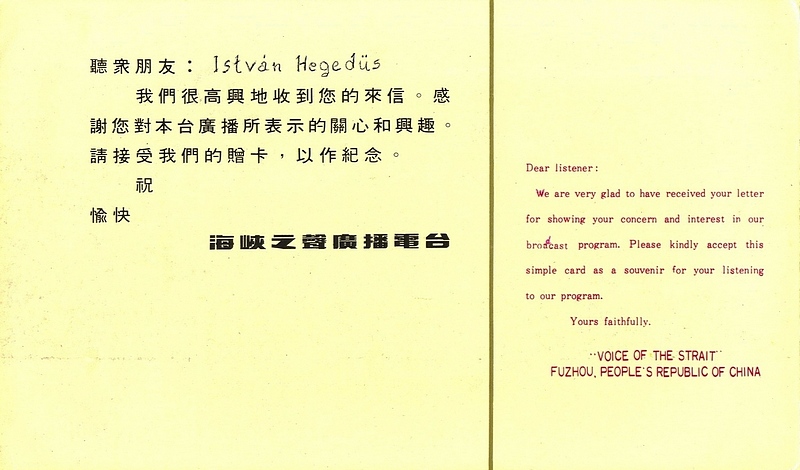 聽衆朋友： István Hegedüs
我們很高興地收到您的來信。感
謝您對本台廣播所表示的關心和興趣。
請接受我們的贈卡，以作紀念。
祝
愉快
海峽之聲廣播電台
Dear listener:
We are very glad to have received your letter
for showing your concern and interest in our
broadcast program. Please kindly accept this
simple card as a souvenir for your listening
to our program.
Yours faithfully.
"VOICE OF THE STRAIT"
FUZHOU, PEOPLE'S REPUBLIC OF CHINA